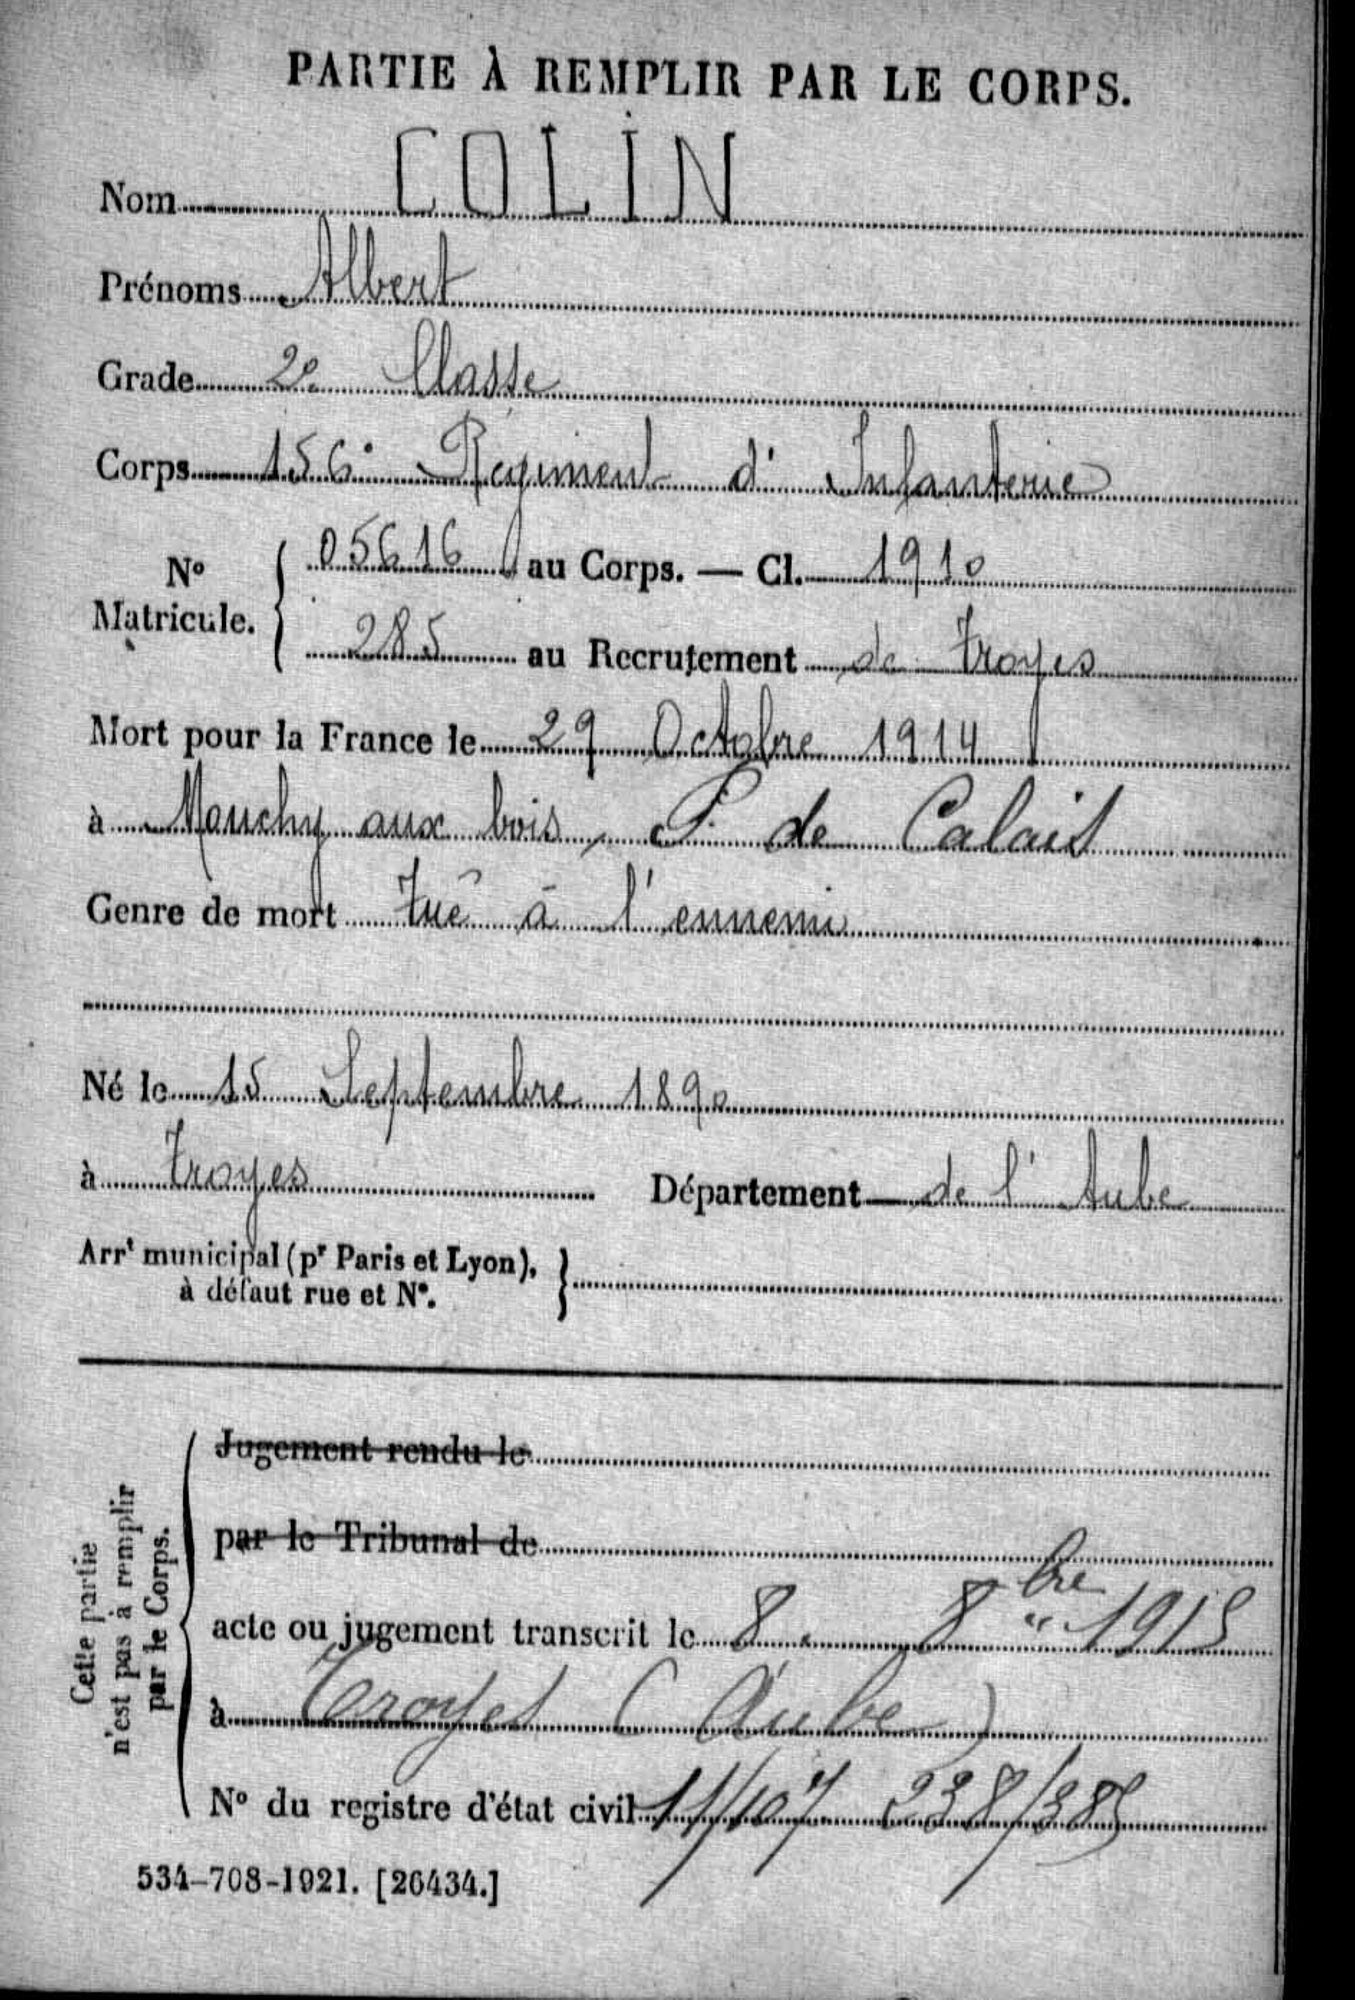 PARTIE À REMPLIR PAR LE CORPS.
Nom COLIN
Prénoms Albert
Grade 2e Classe
Corps 156e Régiment d'Infanterie
No Matricule. { 05616 au Corps. — Cl. 1910
285 au Recrutement de Troyes
Mort pour la France le 29 Octobre 1914
à Monchy aux bois, P. de Calais
Genre de mort Tué à l'ennemi
Né le 15 Septembre 1890
à Troyes Département de l'Aube
Arrt municipal (pr Paris et Lyon), }
à défaut rue et No.
Cette partie
n'est pas à remplir
par le Corps.
Jugement rendu le
par le Tribunal de
acte ou jugement transcrit le 8. 8bre 1915
à Troyes (Aube)
No du registre d'état civil 238/385
534-708-1921. [26434.]